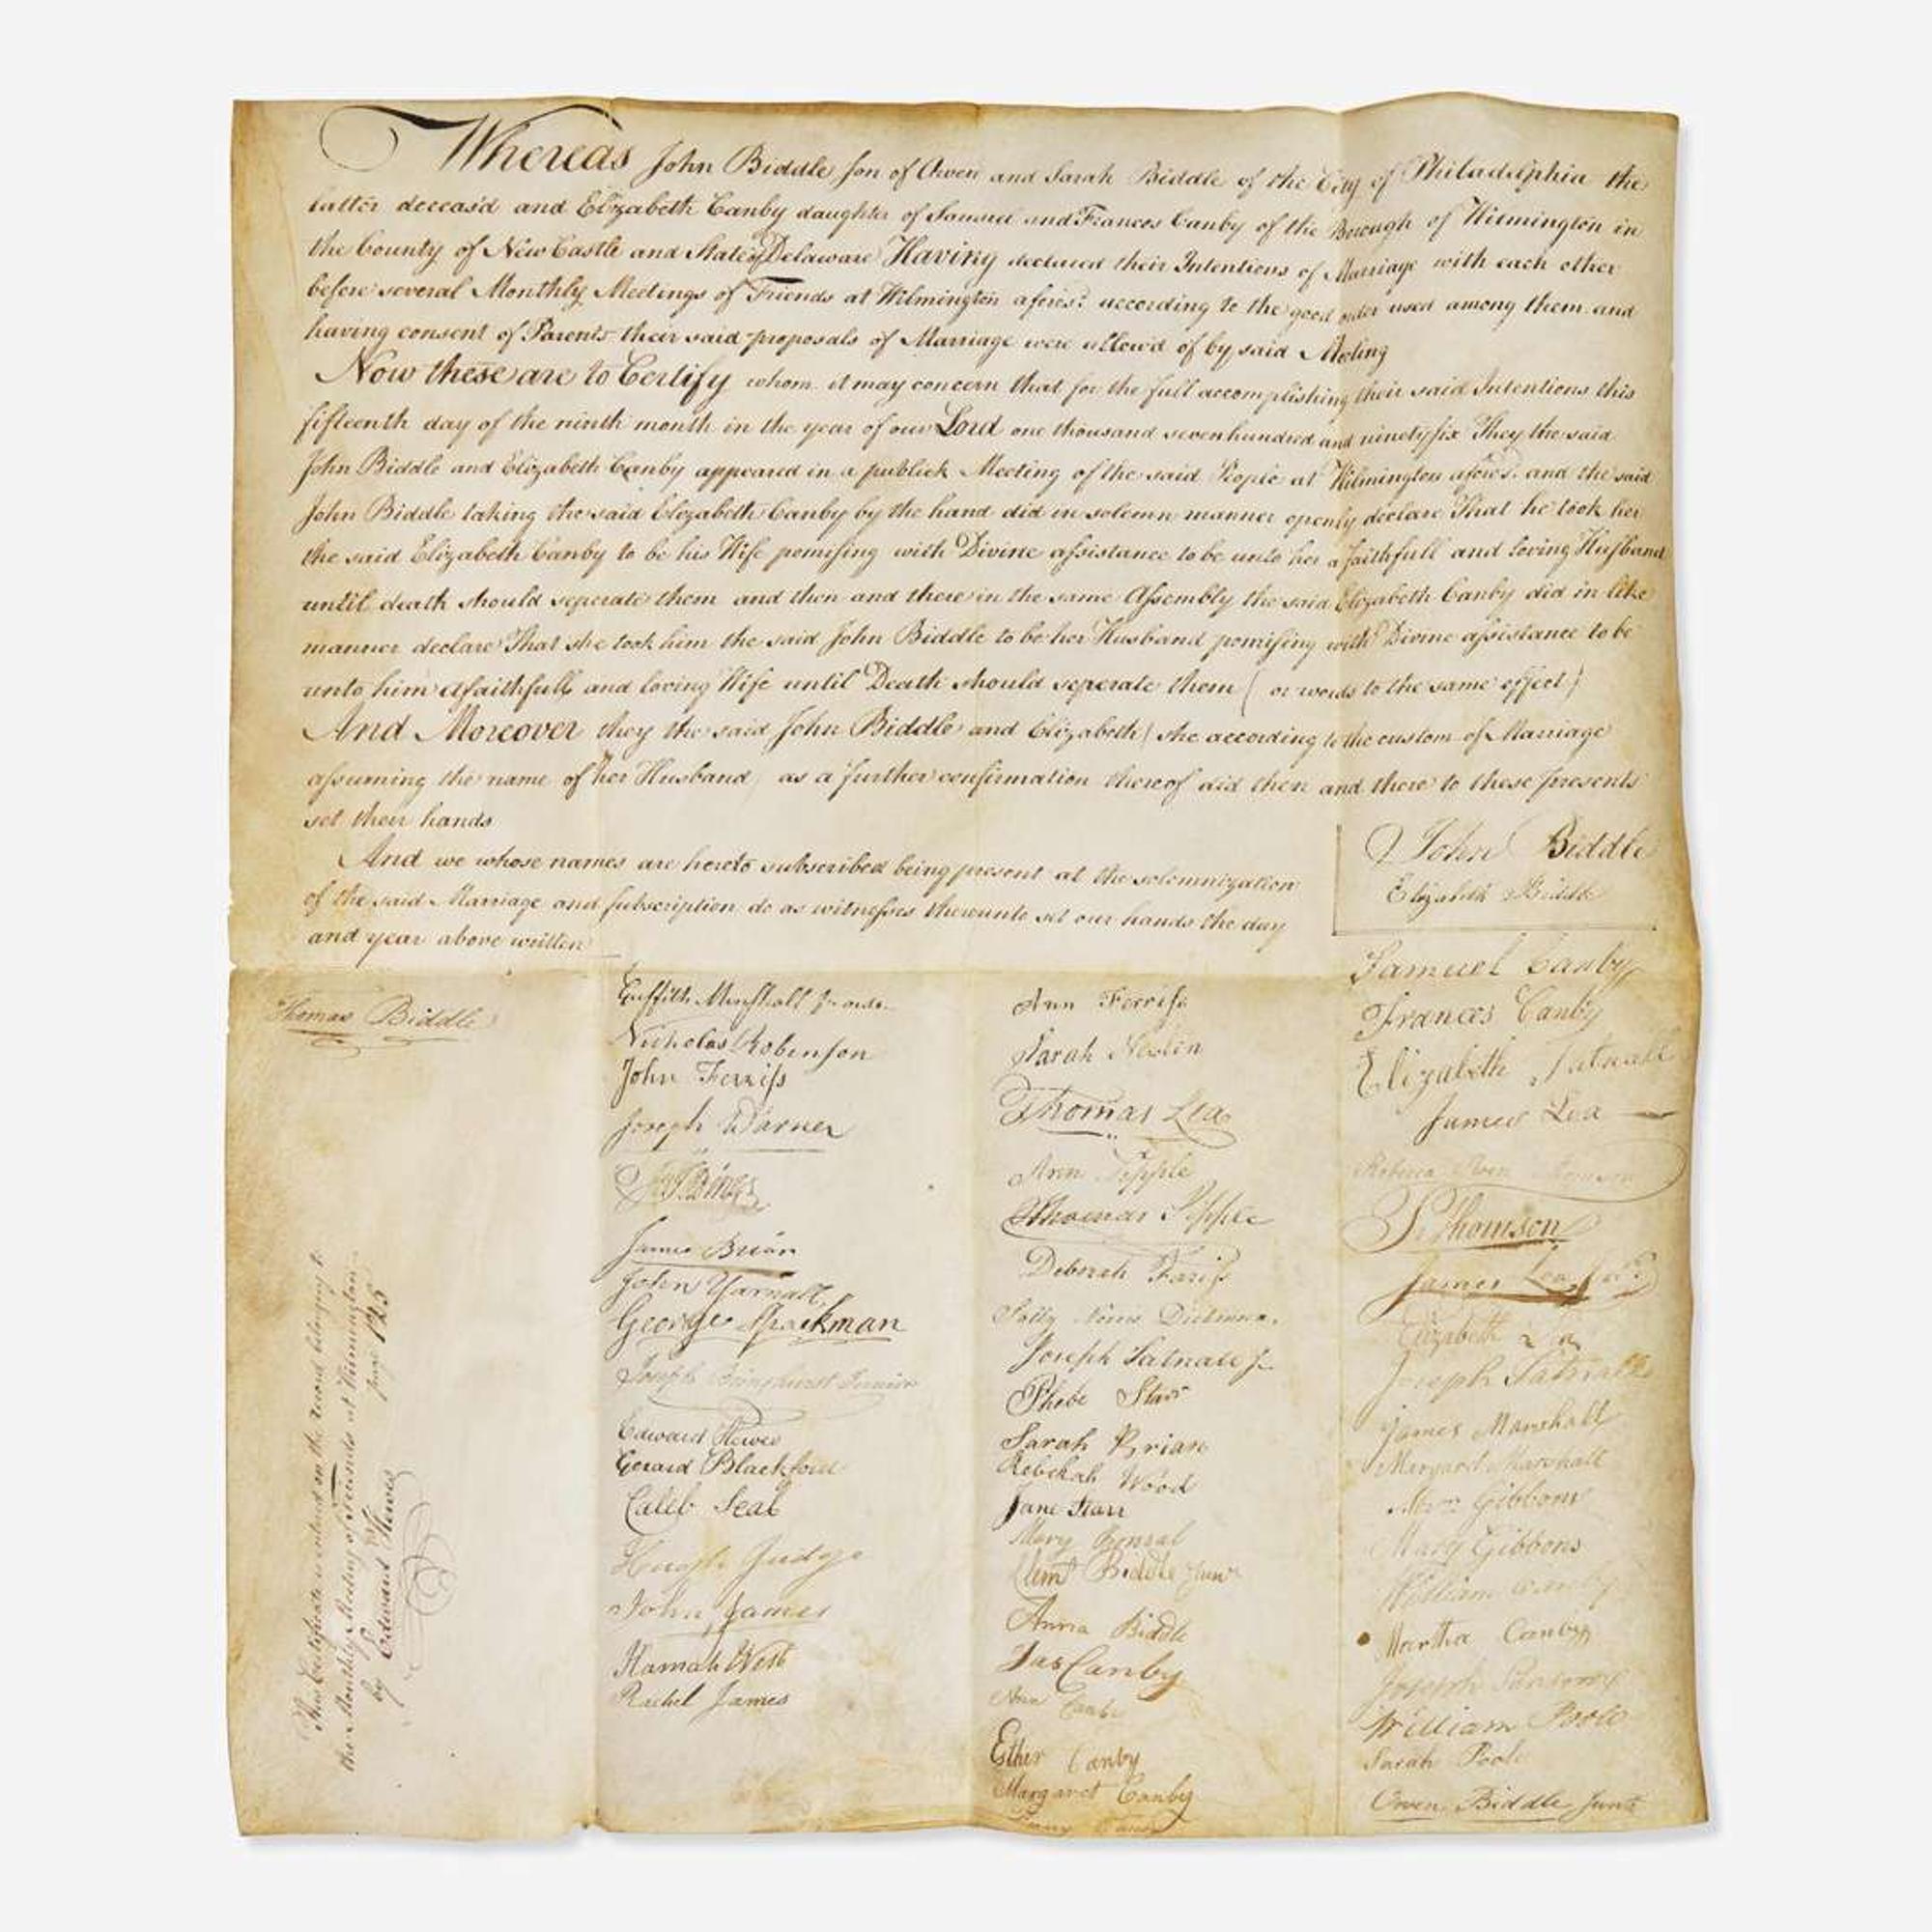 Whereas John Biddle Son of Owen and Sarah Biddle of the City of Philadelphia the
latter deceas'd and Elizabeth Canby daughter of Samuel and Frances Canby of the Borough of Wilmington in
the County of New Castle and State of Delaware Having declared their Intentions of Marriage with each other
before several Monthly Meetings of Friends at Wilmington afores.d according to the good order used among them and
having consent of Parents their said proposals of Marriage were allow'd of by said Meeting
Now these are to Certify whom it may concern that for the full accomplishing their said Intentions this
fifteenth day of the ninth month in the year of our Lord one thousand seven hundred and ninety six They the said
John Biddle and Elizabeth Canby appeared in a publick Meeting of the said People at Wilmington afores.d and the said
John Biddle taking the said Elizabeth Canby by the hand did in solemn manner openly declare That he took her
the said Elizabeth Canby to be his Wife pomising with Divine assistance to be unto her a faithfull and loving Husband
until death should seperate them and then and there in the same Assembly the said Elizabeth Canby did in like
manner declare That she took him the said John Biddle to be her Husband pomising with Divine assistance to be
unto him a faithfull and loving Wife until Death should seperate them ( or words to the same effect )
And Moreover they the said John Biddle and Elizabeth ( she according to the custom of Marriage
assuming the name of her Husband ) as a further confirmation thereof did then and there to these presents
set their hands
John Biddle
Elizabeth Biddle
And we whose names are hereto subscribed being present at the solemnization
of the said Marriage and subscription do as witnesses thereunto set our hands the day
and year above written
Thomas Biddle
Griffith Minshall
Nicholas Robinson
John Ferriss
Joseph Warner
James Brian
John Yarnall
George Spackman
Joseph Bringhurst Junior
Edward Hewes
Gerard Blackford
Caleb Seal
Hugh Judge
John James
Hannah West
Rachel James
Ann Ferriss
Sarah
Thomas Lea
Ann Sipple
Thomas Sipple
Deborah Fariss
Sally Norris Dickinson
Joseph Tatnall Jr
Phebe Starr
Sarah Brian
Rebekah Wood
Jane Starr
Mary Bonsal
Clem.t Biddle Jun.r
Anna Biddle
Jas Canby
Canby
Esther Canby
Margaret Canby
Samuel Canby
Frances Canby
Elizabeth Tatnall
James Lea
Rebecca
P. Thomson
James Lea Jun.r
Elizabeth Lea
Joseph Tatnall
James Marshall
Margaret Marshall
Gibbons
Mary Gibbons
William Canby
Martha Canby
Joseph Sansom
William Poole
Sarah Poole
Owen Biddle Jun.r
This Certificate is entered in the record belonging to
the Monthly Meeting of Friends at Wilmington
page 125
by Edward Hewes